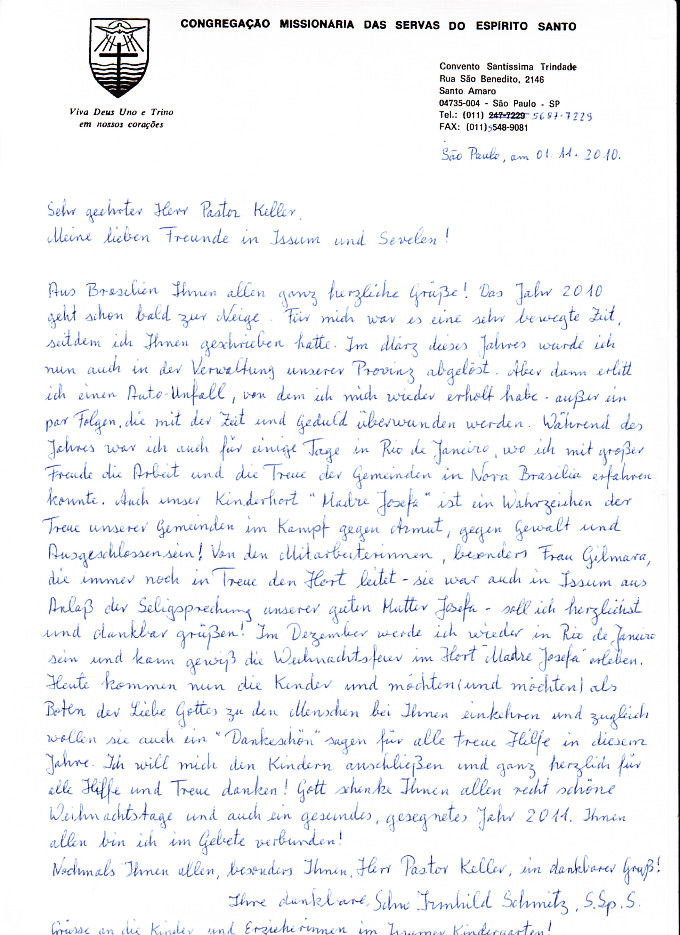 CONGREGAÇÃO MISSIONARIA DAS SERVAS DO ESPÍRITO SANTO
Viva Deus Uno e Trino
em nossos corações
Convento Santíssima Trindade
Rua São Benedito, 2146
Santo Amaro
04735-004 - São Paulo - SP
Tel.: (011) 247-7229 5687-7229
FAX: (011) 5548-9081
São Paulo, am 01.11.2010.
Sehr geehrter Herr Pastor Keller,
Meine lieben Freunde in Issum und Sevelen!
Aus Brasilien Ihnen allen ganz herzliche Grüße! Das Jahr 2010
geht schon bald zur Neige. Für mich war es eine sehr bewegte Zeit,
seitdem ich Ihnen geschrieben hatte. Im März dieses Jahres wurde ich
nun auch in der Verwaltung unserer Provinz abgelöst. Aber dann erlitt
ich einen Auto-Unfall, von dem ich mich wieder erholt habe - außer ein
par Folgen, die mit der Zeit und Geduld überwunden werden. Während des
Jahres war ich auch für einige Tage in Rio de Janeiro, wo ich mit großer
Freude die Arbeit und die Treue der Gemeinden in Nova Brasilia erfahren
konnte. Auch unser Kinderhort "Madre Josefa" ist ein Wahrzeichen der
Treue unserer Gemeinden im Kampf gegen Armut, gegen Gewalt und
Ausgeschlossensein! Von den Mitarbeiterinnen, besonders Frau Gilmara,
die immer noch in Treue den Hort leitet - sie war auch in Issum aus
Anlaß der Seligsprechung unserer guten Mutter Josefa - soll ich herzlichst
und dankbar grüßen! Im Dezember werde ich wieder in Rio de Janeiro
sein und kann gewiß die Weihnachtsfeier im Hort "Madre Josefa" erleben.
Heute kommen nun die Kinder und möchten (und möchten) als
Boten der Liebe Gottes zu den Menschen bei Ihnen einkehren und zugleich
wollen sie auch ein "Dankeschön" sagen für alle treue Hilfe in diesem
Jahre. Ich will mich den Kindern anschließen und ganz herzlich für
alle Hilfe und Treue danken! Gott schenke Ihnen allen recht schöne
Weihnachtstage und auch ein gesundes, gesegnetes Jahr 2011. Ihnen
allen bin ich im Gebete verbunden!
Nochmals Ihnen allen, besonders Ihnen, Herr Pastor Keller, ein dankbarer Gruß!
Ihre dankbare Schw. Irmhild Schmitz, S.Sp.S.
Grüsse an die Kinder und Erzieherinnen im Issumer Kindergarten!